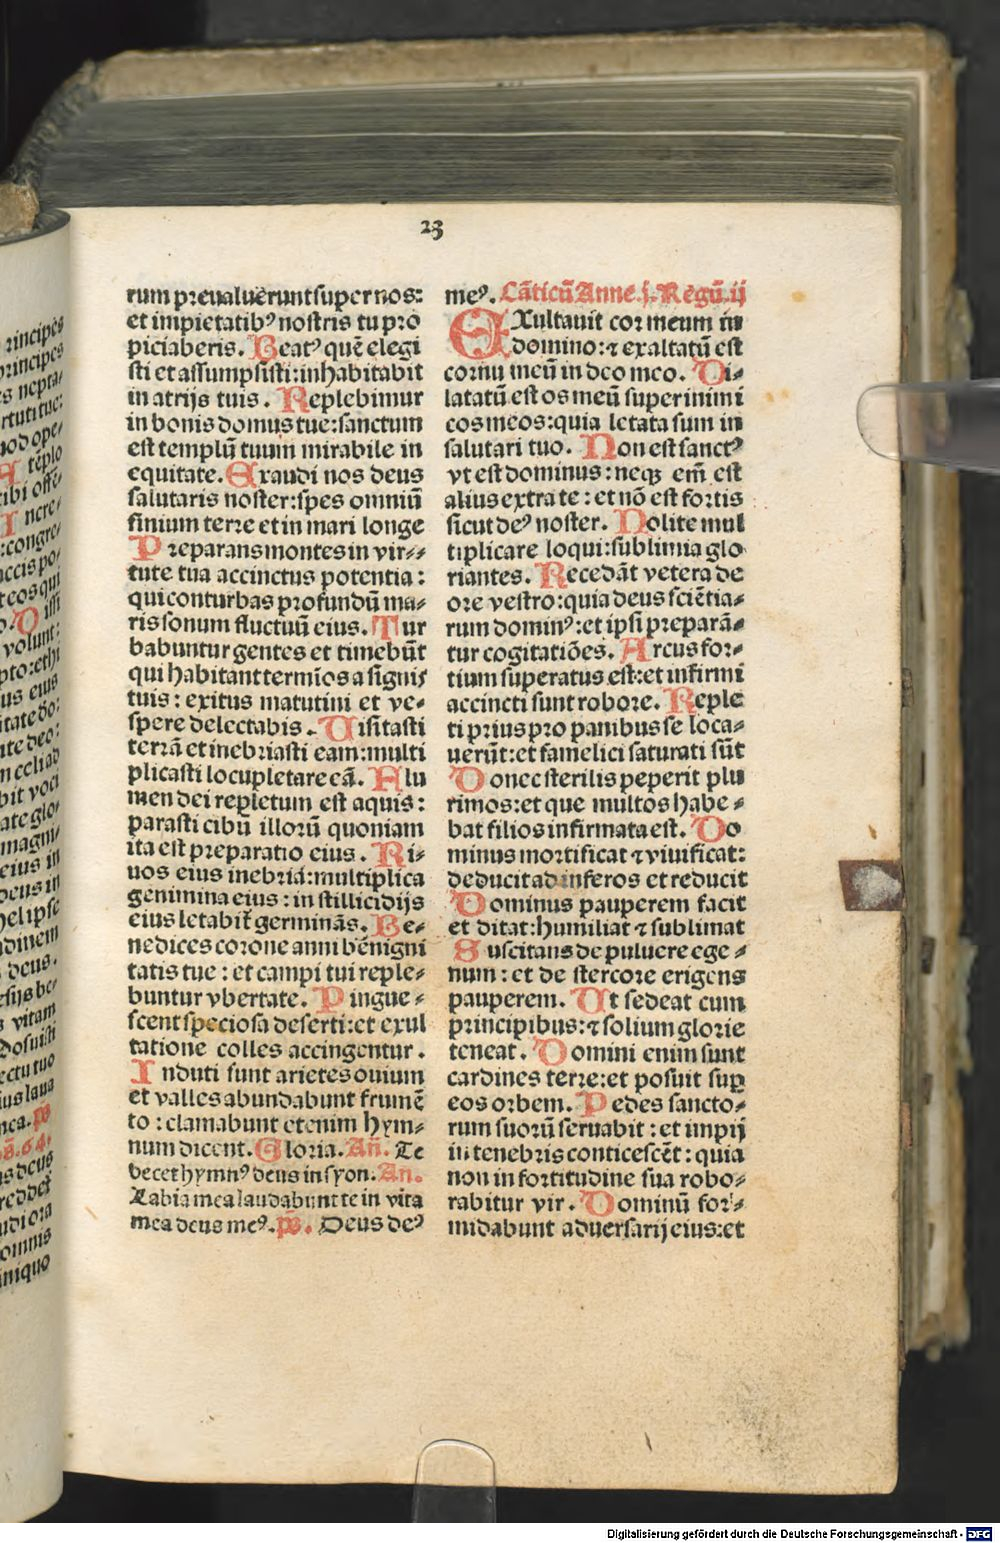 23
rum preualuerunt super nos:
et impietatibꝰ nostris tu pro
piciaberis. Beatꝰ quē elegi
sti et assumpsisti: inhabitabit
in atrijs tuis. Replebimur
in bonis domus tue: sanctum
est templū tuum mirabile in
equitate. Exaudi nos deus
salutaris noster: spes omniū
finium terre et in mari longe
Preparans montes in vir⸗
tute tua accinctus potentia:
qui conturbas profundū ma⸗
ris sonum fluctuū eius. Tur
babuntur gentes et timebūt
qui habitant termīos a signis
tuis: exitus matutini et ve⸗
spere delectabis. Uisitasti
terrā et inebriasti eam: multi
plicasti locupletare eā. Flu
men dei repletum est aquis:
parasti cibū illorū quoniam
ita est preparatio eius. Ri⸗
uos eius inebria: multiplica
genimina eius: in stillicidijs
eius letabit̄ germinās. Be⸗
nedices corone anni benigni
tatis tue: et campi tui reple⸗
buntur vbertate. Pingue⸗
scent speciosa deserti: et exul
tatione colles accingentur.
Induti sunt arietes ouium
et valles abundabunt frumē
to: clamabunt etenim hym⸗
num dicent. Gloria. Añ. Te
decet hymnꝰ deus in syon. An.
Labia mea laudabunt te in vita
mea deus meꝰ. ps. Deus deꝰ
meꝰ. Cāticū Anne .j. Regū .ij
EXultauit cor meum in
domino: ⁊ exaltatū est
cornu meū in deo meo. Di⸗
latatū est os meū super inimi
cos meos: quia letata sum in
salutari tuo. Non est sanctꝰ
vt est dominus: neqꝫ em̄ est
alius extra te: et nō est fortis
sicut deꝰ noster. Nolite mul
tiplicare loqui: sublimia glo
riantes. Recedāt vetera de
ore vestro: quia deus sciētia⸗
rum dominꝰ: et ipsi preparā⸗
tur cogitatiōes. Arcus for⸗
tium superatus est: et infirmi
accincti sunt robore. Reple
ti prius pro panibus se loca⸗
uerūt: et famelici saturati sūt
Donec sterilis peperit plu
rimos: et que multos habe⸗
bat filios infirmata est. Do
minus mortificat ⁊ viuificat:
deducit ad inferos et reducit
Dominus pauperem facit
et ditat: humiliat ⁊ sublimat
Suscitans de puluere ege⸗
num: et de stercore erigens
pauperem. Ut sedeat cum
principibus: ⁊ solium glorie
teneat. Domini enim sunt
cardines terre: et posuit suꝑ
eos orbem. Pedes sancto⸗
rum suorū seruabit: et impij
in tenebris conticescēt: quia
non in fortitudine sua robo⸗
rabitur vir. Dominū for⸗
midabunt aduersarij eius: et
Digitalisierung gefördert durch die Deutsche Forschungsgemeinschaft - DFG